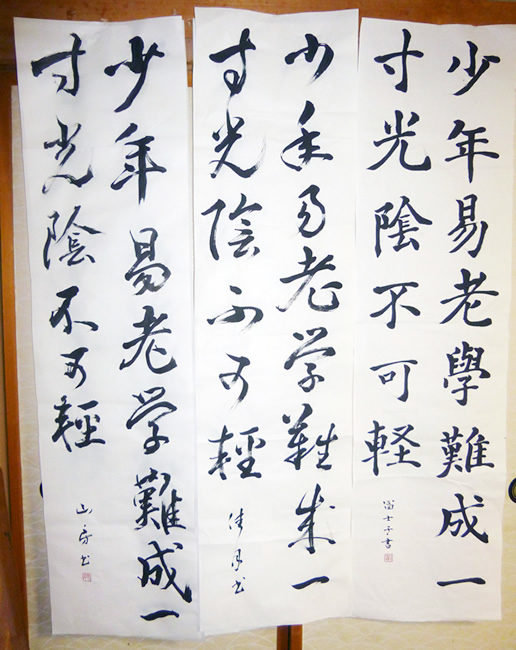 少年易老學難成一
寸光陰不可軽
冨士子書
少年易老学難成一
寸光陰不可輕
少年易老学難成一
寸光陰不可輕